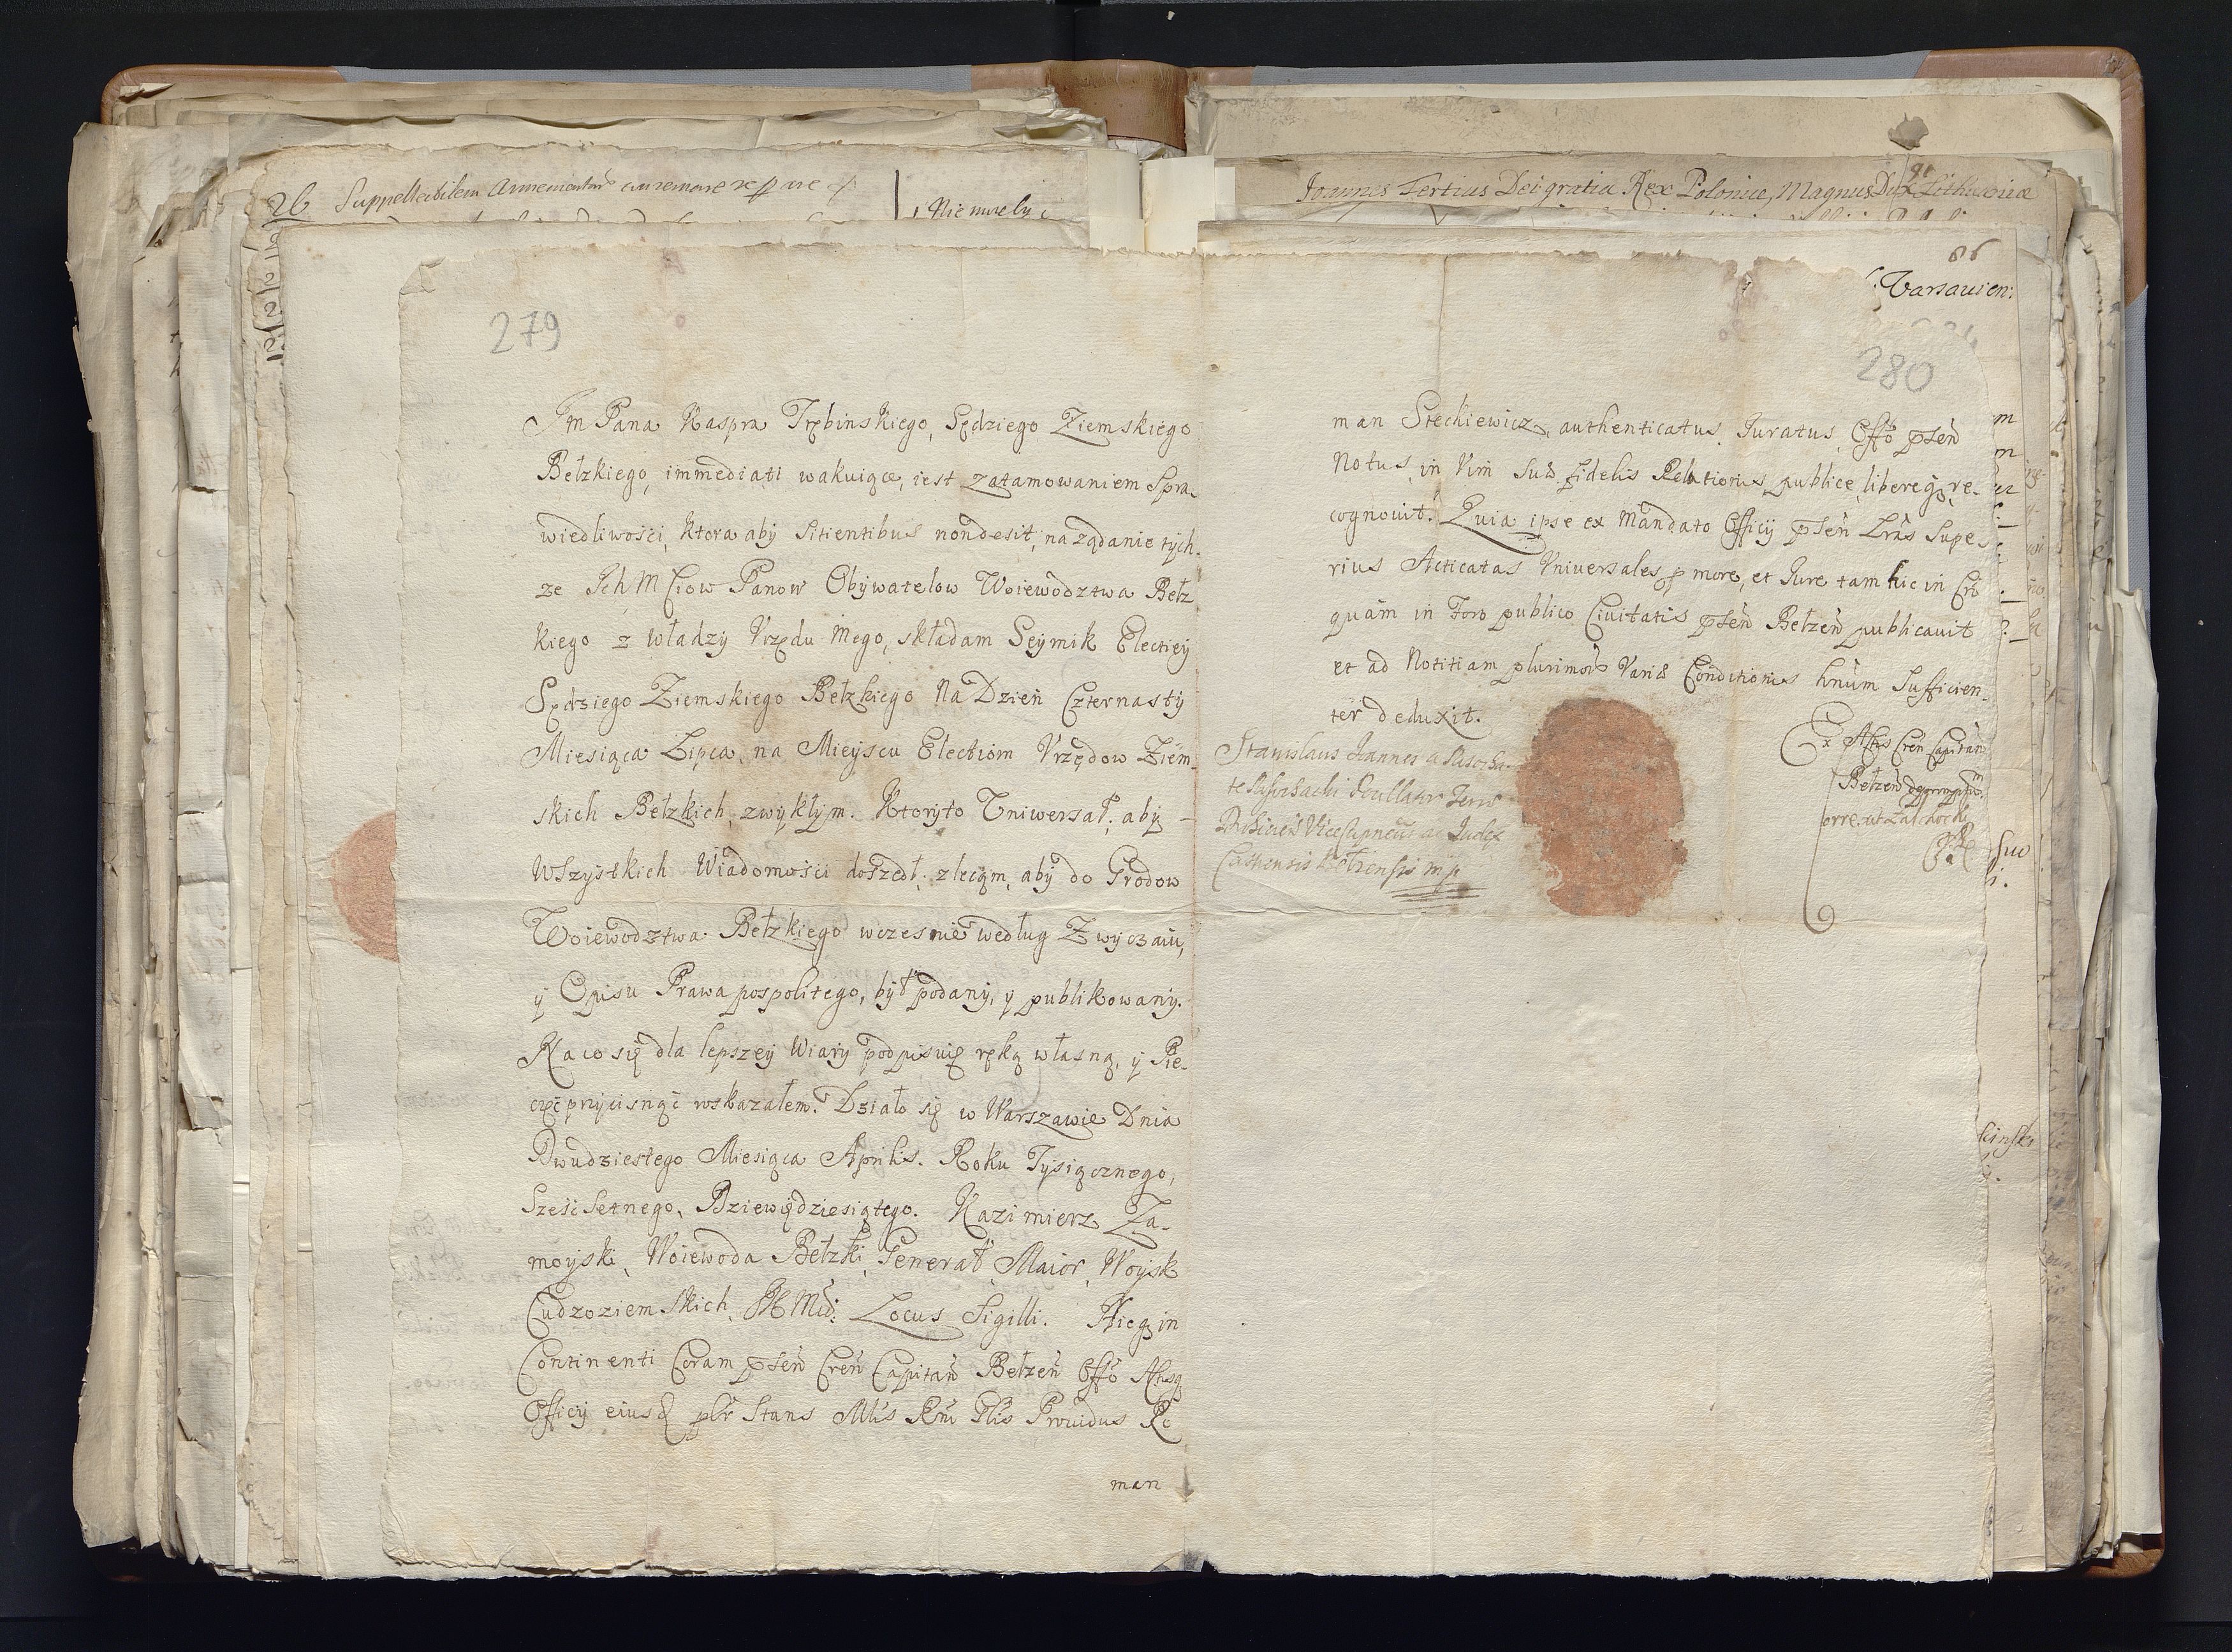 26 Suppellectilem
Nie
279
Jm Pana Kaspra Trębinskiego, Sędziego Ziemskiego
Bełzkiego, immediati wakuiące, iest zatamowaniem Spra-
wiedliwości, ktora aby sitientibus nondesit, na ządanie tych-
ze Ich MCiow Panow Obywatelow Woiewodztwa Bełz
kiego z władzy Vrzędu Mego, składam Seymik Electiey
Sędziego Ziemskiego Bełzkiego Na Dzień Czternasty
Miesiąca Lipca, na Mieyscu Electiom Vrzędow Ziem-
skich Bełzkich, zwykłym. Ktoryto Vniwersał, aby -
Wszystkich Wiadomości doszedł, zlecam, aby do Grodow
Woiewodztwa Bełzkiego wczesnie według Zwyczaiu,
y Opisu Prawa pospolitego, był podany, y publikowany.
Na co się dla lepszey Wiary podpisuię ręką własną, y Pie-
częć przycisnąć roskazałem. Działo się w Warszawie Dnia
Dwudziestego Miesiąca Aprilis. Roku Tysiącznego,
Sześćsetnego, Dziewiędziesiątego. Kazimierz Za-
moyski, Woiewoda Bełzki, Generał Maior, Woysk
Cudzoziemskich, Locus Sigilli. Hicq in
Continenti Coram psen̄ Cren̄ Capitan̄ Bełzen̄ Offō Actisq
Officij eiusd plr Stans Mlis Rni Glis Prouidus Ro
man
Joannes Tertius Dei gratia Rex Poloniæ, Magnus Dux Lithuaniæ
86
Varsauien:
280
man Steckiewicz, authenticatus, Juratus, Offō psen̄
Notus, in Vim Suæ fidelis Relationis, publice, libereq re-
cognouit. Quia ipse ex Mandato Officij psen̄ Lrās Supe-
rius Acticatas Vniuersales, p more, et Jure tam hic in Cro
quàm in Foro publico Ciuitatis psen̄ Bełzen̄ publicauit
et ad Notitiam plurimor Variæ Conditionis hnūm Sufficien-
ter deduxit.
Stanislaus Joannes a
Castrensis
Ex Actis Cren̄ Capitan̄
Bełzen̄